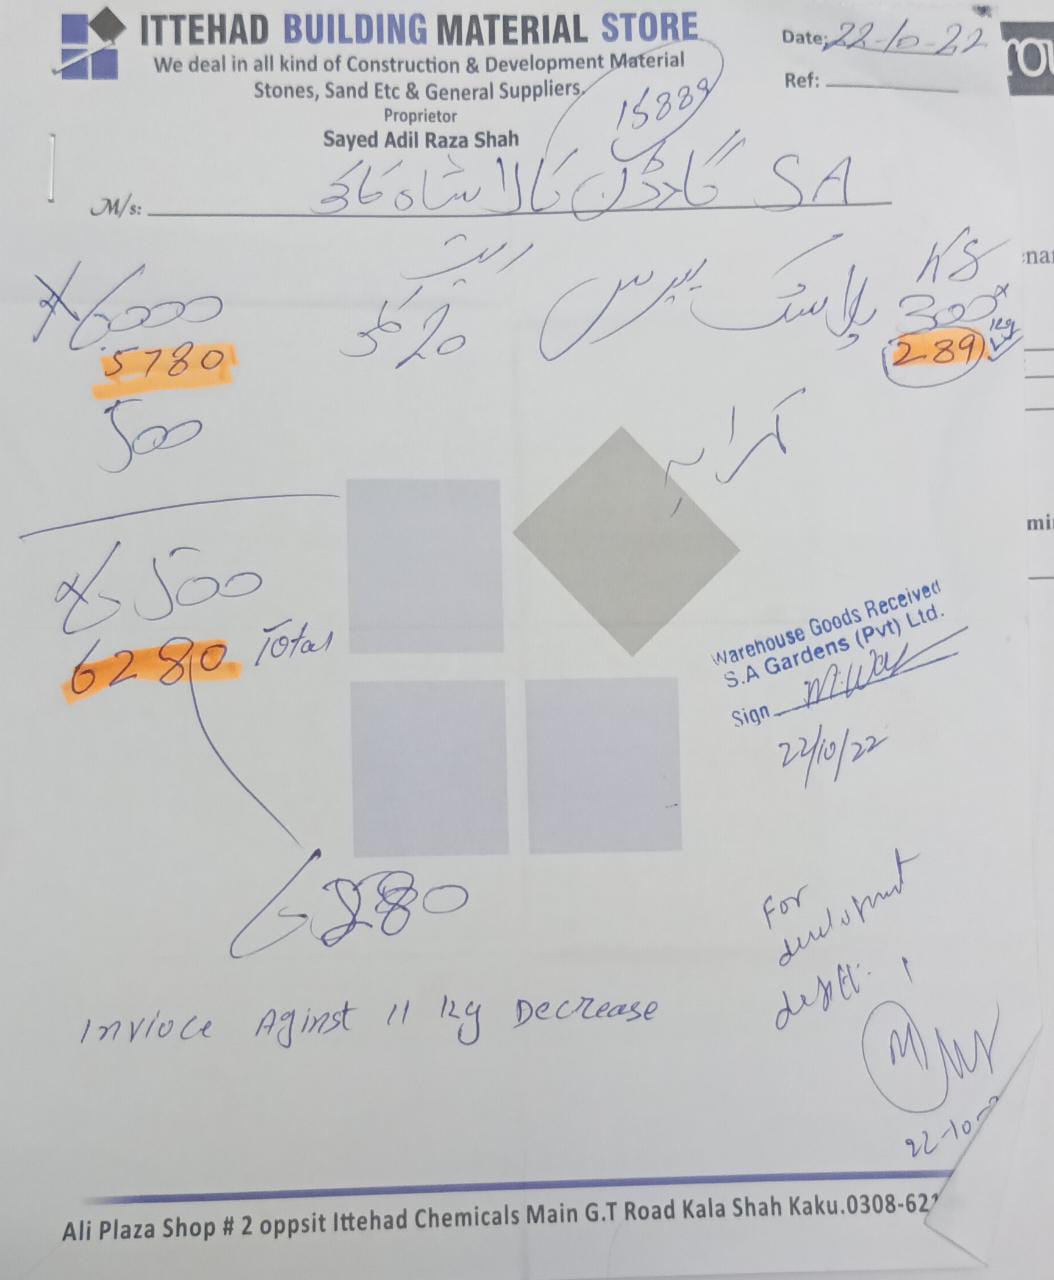 ITTEHAD BUILDING MATERIAL STORE
Date: 22-10-22
We deal in all kind of Construction & Development Material
Stones, Sand Etc & General Suppliers.
Ref:
Proprietor
Sayed Adil Raza Shah
15889
M/s: SA گارڈن کالا شاہ کاکو
KG
300 پلاسٹک پیرس ریٹ 20 6000
289 kg 5780
کرایہ 500
6500
6280 Total
Warehouse Goods Received
S.A Gardens (Pvt) Ltd.
Sign
22/10/22
6280
For
development
deptt.
Invioce Aginst 11 kg Decrease
22-10-
Ali Plaza Shop # 2 oppsit Ittehad Chemicals Main G.T Road Kala Shah Kaku.0308-621